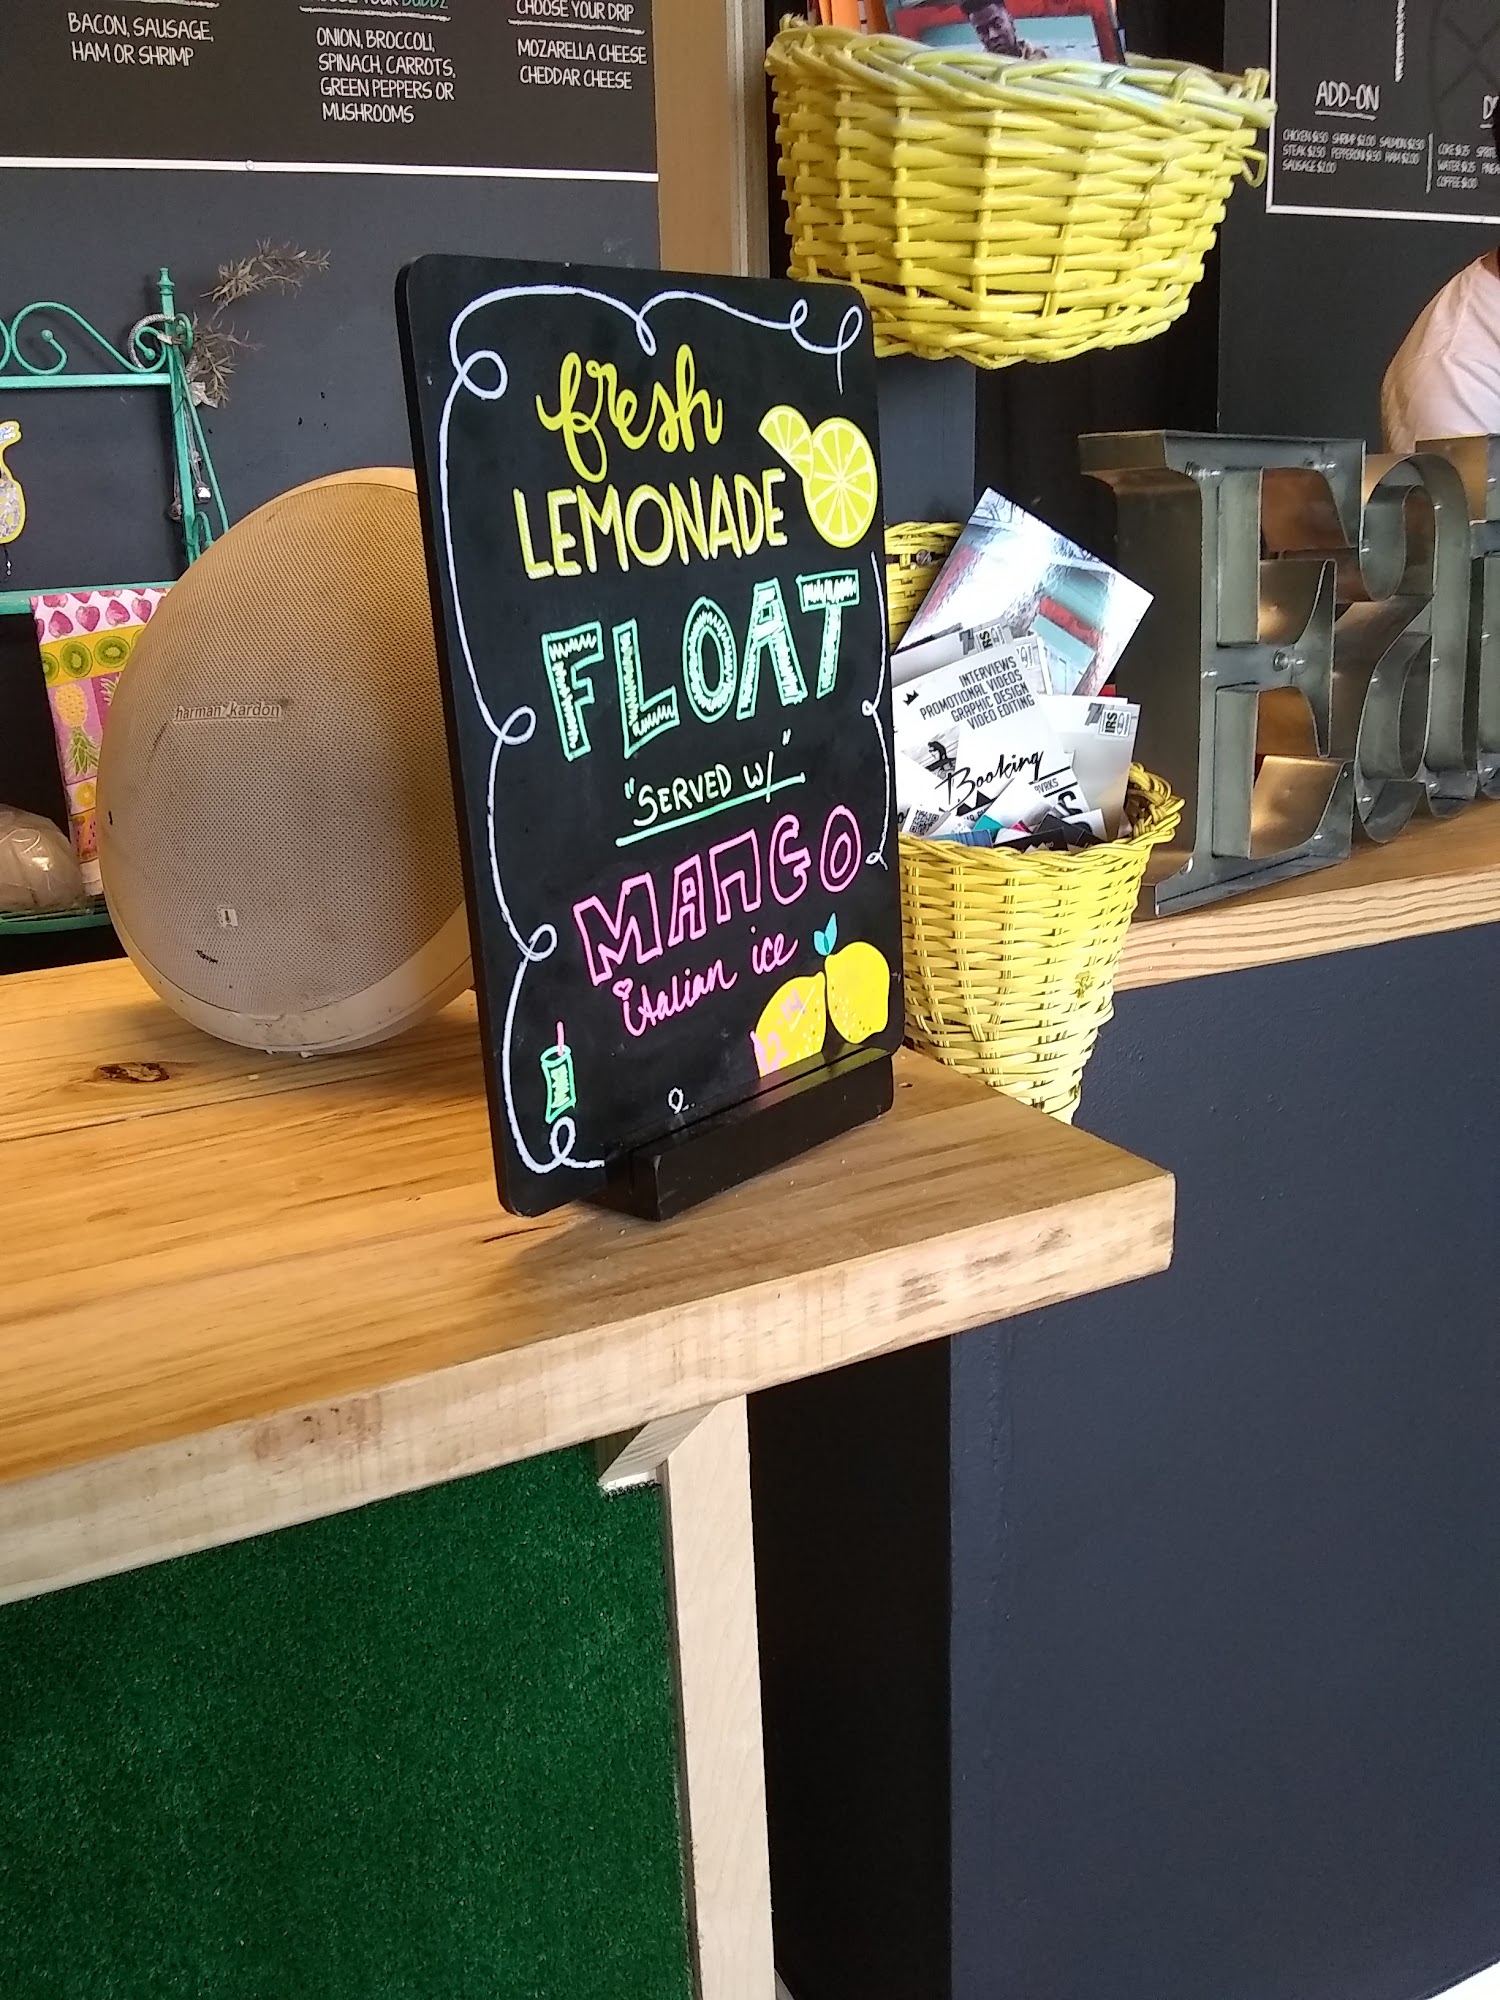 BACON, SAUSAGE,
HAM OR SHRIMP
ONION, BROCCOLI,
SPINACH, CARROTS,
GREEN PEPPERS OR
MUSHROOMS
CHOOSE YOUR DRIP
MOZARELLA CHEESE
CHEDDAR CHEESE
ADD-ON
CHICKEN $1.50 SHRIMP $2.00 SALMON $2.50
STEAK $2.50 PEPPERONI $1.50 HAM $2.00
SAUSAGE $2.00
COKE $1.25 SPRITE
WATER $1.25
COFFEE $1.00
fresh
LEMONADE
FLOAT
"SERVED W/"
MANGO
italian ice
harman/kardon
INTERVIEWS
PROMOTIONAL VIDEOS
GRAPHIC DESIGN
VIDEO EDITING
Booking
Eat